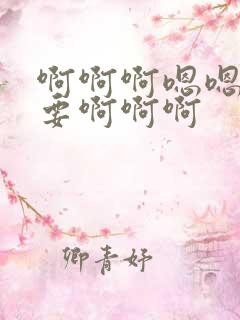 啊啊啊嗯嗯
要啊啊啊
卿青妤